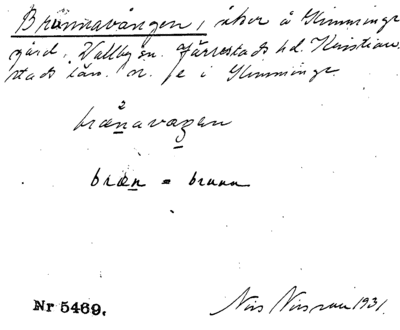 Brännavången, åker å Glimminge
gård, Vallby sn. Järrestads hd. Kristian-
stads län. n. f. i Glimminge
brænavagen
bræn = brunn
Nr 5469.
Nils Nilsson 1931.